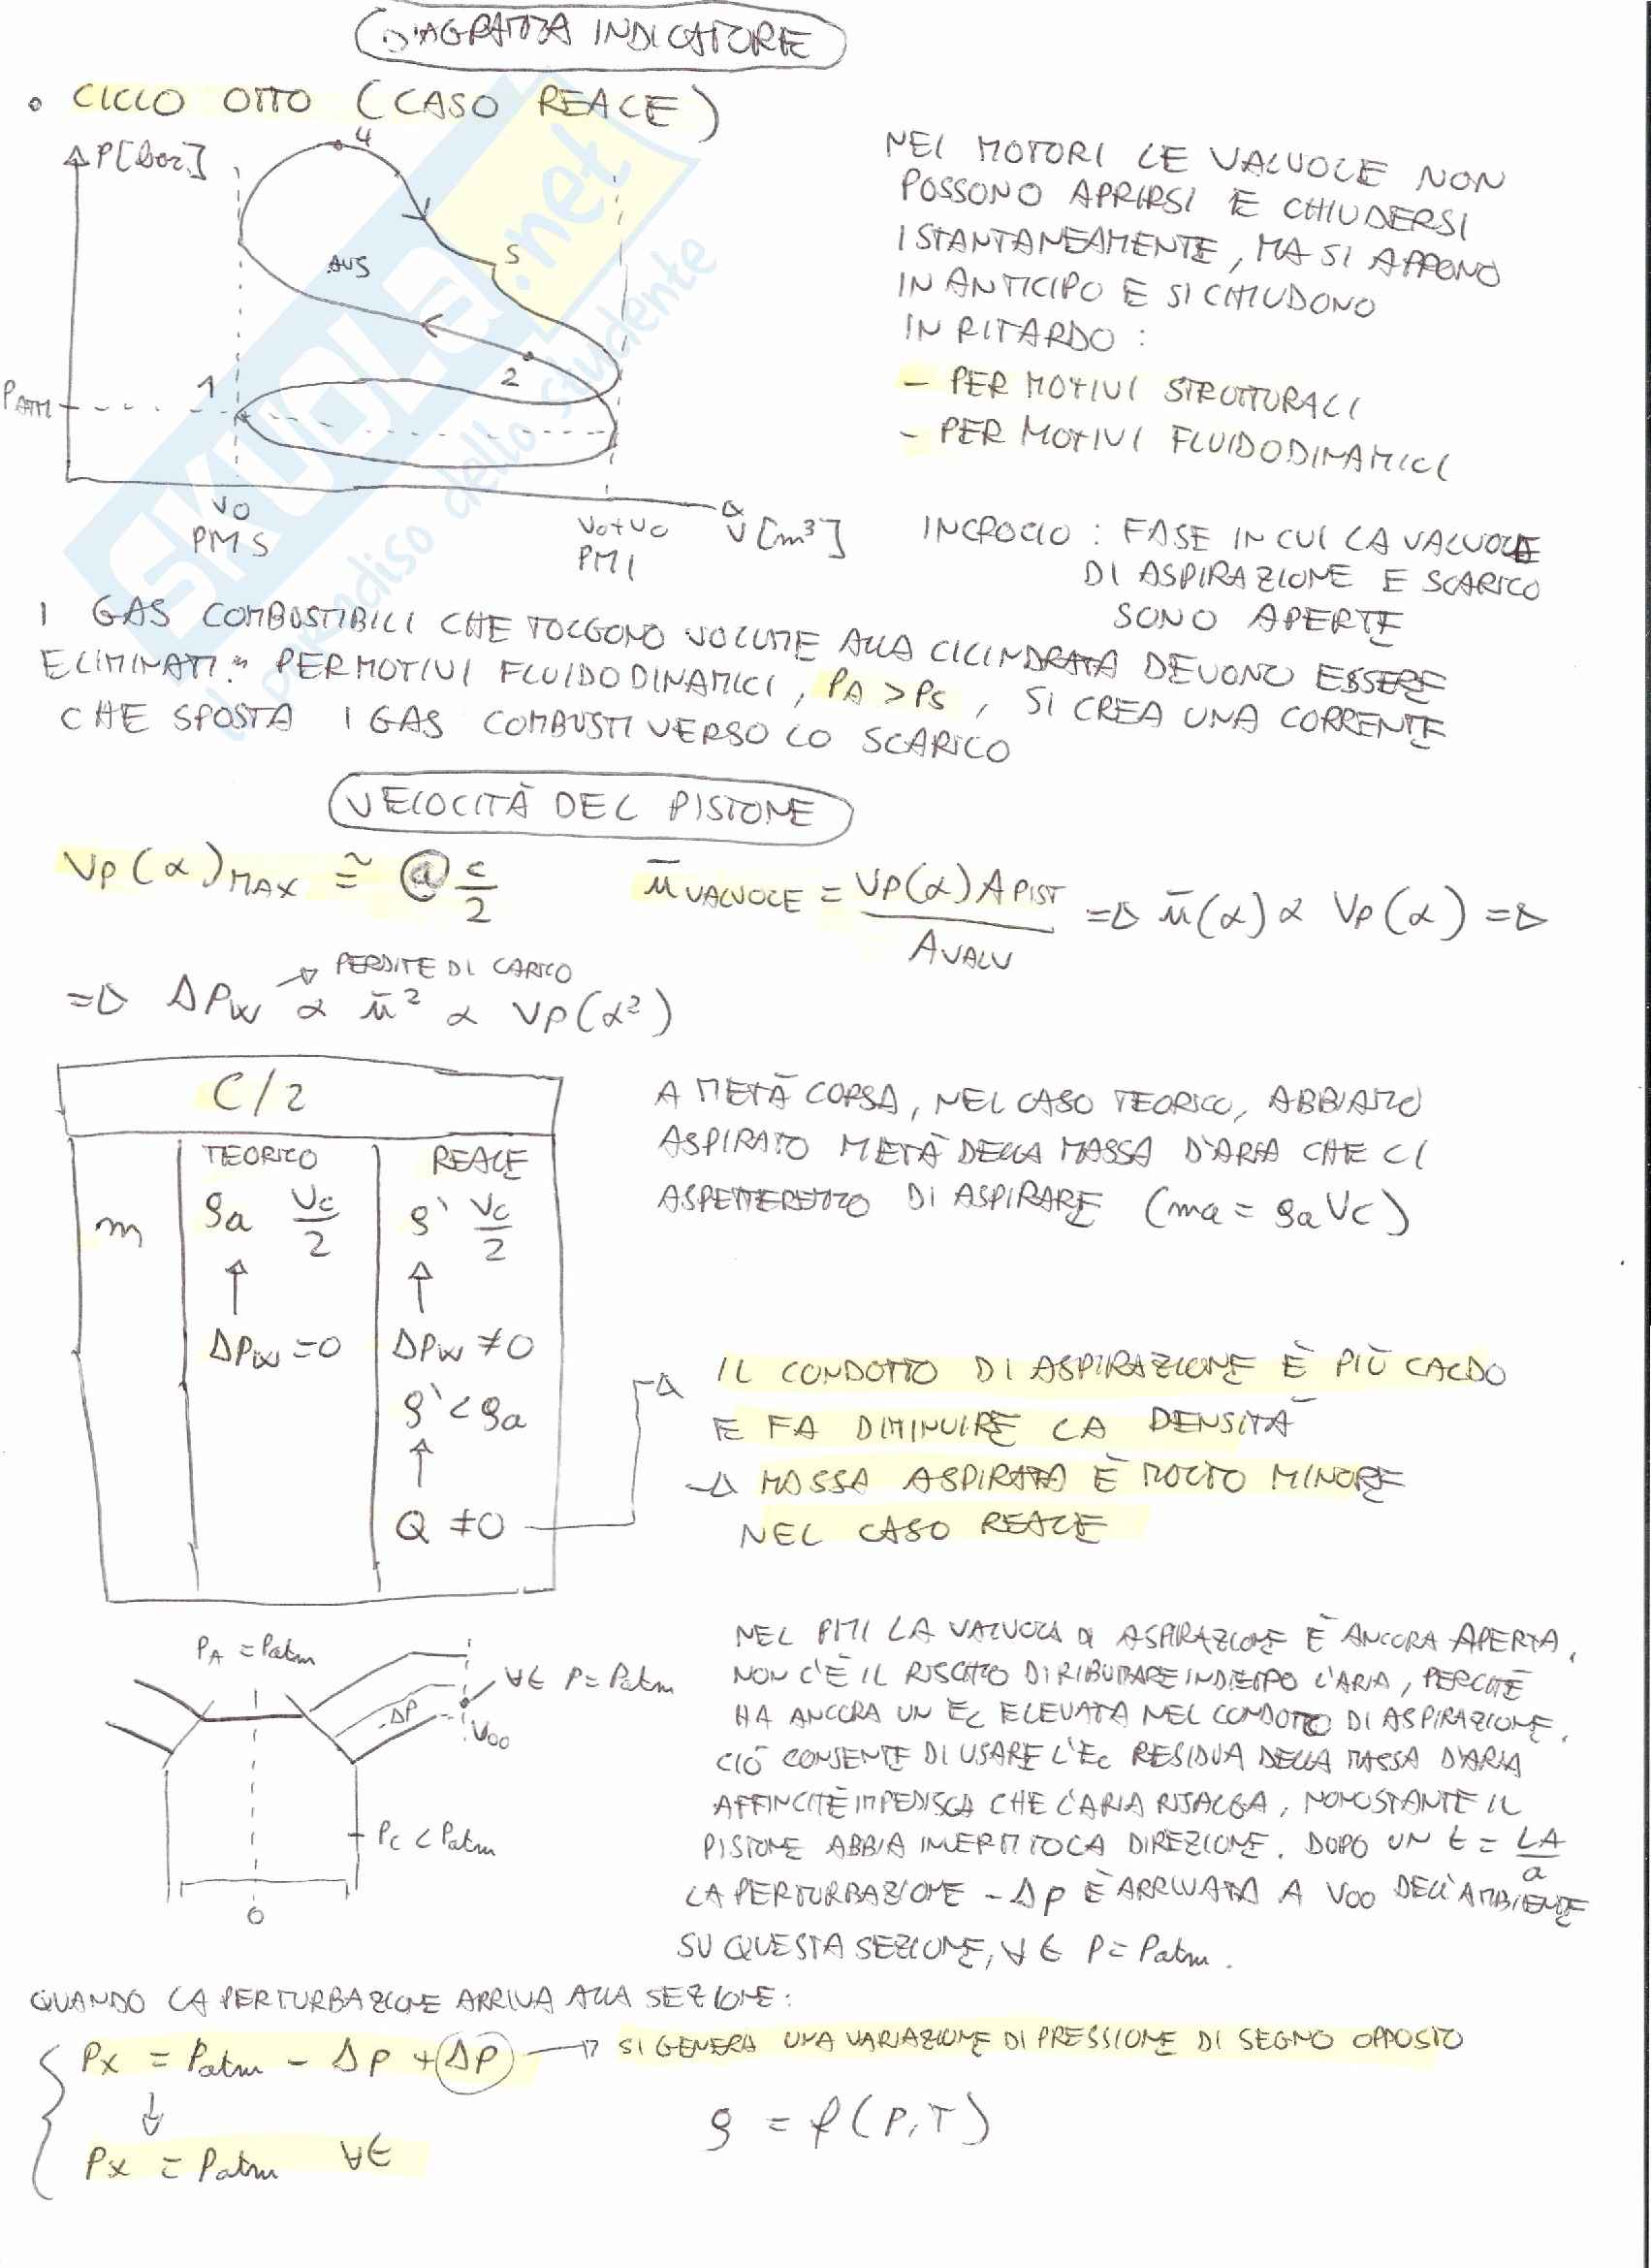 DIAGRAMMA INDICATORE
• CICLO OTTO (CASO REALE)
P[bar]
4
5
AVS
2
1
PATM
V0
PMS
V0+V0
PMI
V [m³]
NEI MOTORI LE VALVOLE NON
POSSONO APRIRSI E CHIUDERSI
ISTANTANEAMENTE, MA SI APRONO
IN ANTICIPO E SI CHIUDONO
IN RITARDO:
- PER MOTIVI STRUTTURALI
- PER MOTIVI FLUIDODINAMICI
INCROCIO: FASE IN CUI LA VALVOLE
DI ASPIRAZIONE E SCARICO
SONO APERTE
I GAS COMBUSTIBILI CHE TOLGONO VOLUME ALLA CILINDRATA DEVONO ESSERE
ELIMINATI. PER MOTIVI FLUIDODINAMICI, PA > PS, SI CREA UNA CORRENTE
CHE SPOSTA I GAS COMBUSTI VERSO LO SCARICO
VELOCITÀ DEL PISTONE
Vp(α)MAX ≅ @ c/2
ū VALVOLE = Vp(α) APIST / AVALV => ū(α) ∝ Vp(α) =>
PERDITE DI CARICO
=> ΔPw ∝ ū² ∝ Vp(α²)
C/2
TEORICO REALE
m ρa Vc/2 ρ' Vc/2
↑ ↑
ΔPw = 0 ΔPw ≠ 0
ρ' < ρa
↑
Q ≠ 0
A METÀ CORSA, NEL CASO TEORICO, ABBIAMO
ASPIRATO METÀ DELLA MASSA D'ARIA CHE CI
ASPETTEREMMO DI ASPIRARE (ma = ρa Vc)
IL CONDOTTO DI ASPIRAZIONE È PIÙ CALDO
E FA DIMINUIRE LA DENSITÀ
→ MASSA ASPIRATA È MOLTO MINORE
NEL CASO REALE
PA = Patm
∀t P = Patm
-ΔP
V00
Pc < Patm
0
NEL PMI LA VALVOLA DI ASPIRAZIONE È ANCORA APERTA.
NON C'È IL RISCHIO DI RIBUTTARE INDIETRO L'ARIA, PERCHÈ
HA ANCORA UN Ec ELEVATA NEL CONDOTTO DI ASPIRAZIONE.
CIÒ CONSENTE DI USARE L'Ec RESIDUA DELLA MASSA D'ARIA
AFFINCHÈ IMPEDISCA CHE L'ARIA RISALGA, NONOSTANTE IL
PISTONE ABBIA INVERTITO LA DIREZIONE. DOPO UN t = LA/a
LA PERTURBAZIONE -Δp È ARRIVATA A V00 DELL'AMBIENTE
SU QUESTA SEZIONE, ∀t P = Patm.
QUANDO LA PERTURBAZIONE ARRIVA ALLA SEZIONE:
Px = Patm - ΔP + ΔP → SI GENERA UNA VARIAZIONE DI PRESSIONE DI SEGNO OPPOSTO
↓
Px = Patm ∀t
ρ = f(P,T)
SKUOLA.net
il paradiso dello studente